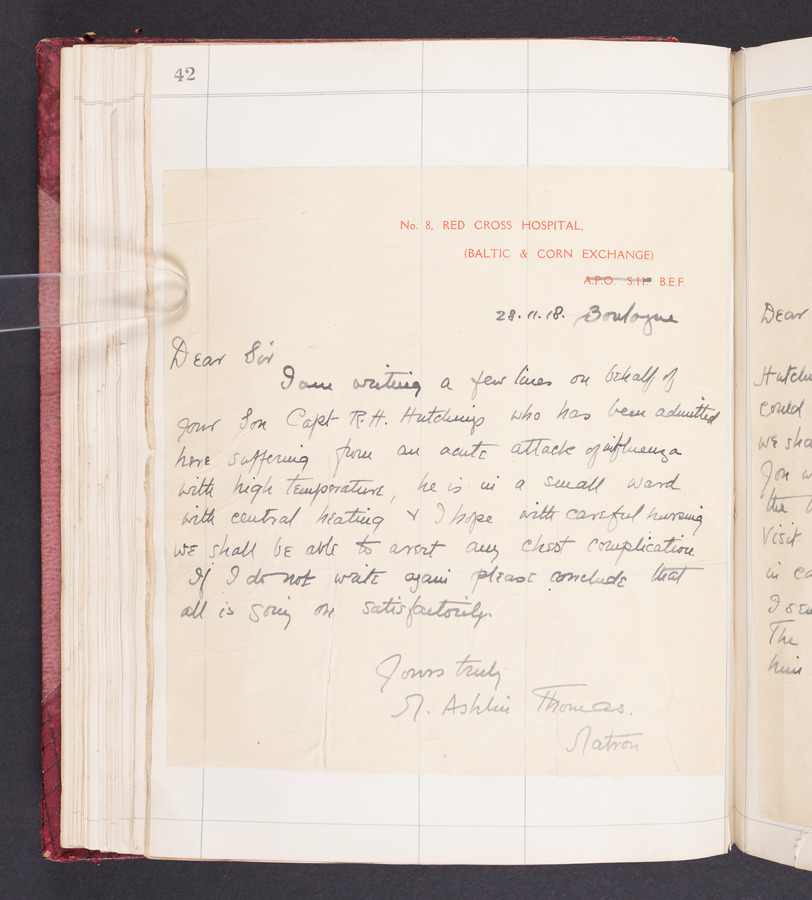 42
No. 8, RED CROSS HOSPITAL,
(BALTIC & CORN EXCHANGE)
A.P.O. S.11. B.E.F.
28.11.18. Boulogne
Dear Sir
I am writing a few lines on behalf of
your Son Capt R.H. Hutchings who has been admitted
here suffering from an acute attack of influenza
with high temperature, he is in a small ward
with central heating & I hope with careful nursing
we shall be able to avert any chest complication.
If I do not write again please conclude that
all is going on satisfactorily.
Yours truly
M. Ashlin Thomas.
Matron
Dear
Hutchi
could
we sha
you w
the
Visit
in ca
I
The
him